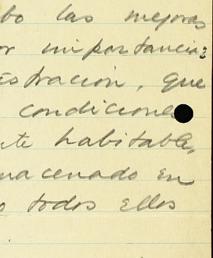 bo las mejoras
or importancia
istración, que
condiciones
te habitable,
macenado en
o todos ellos